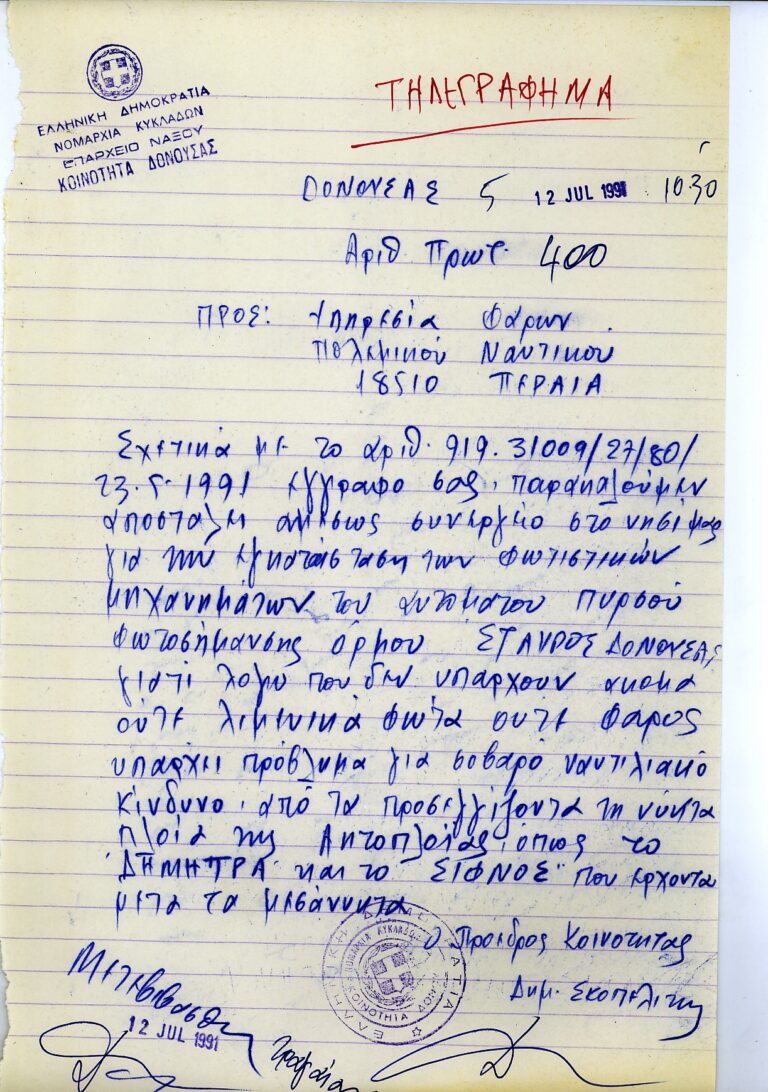 ΤΗΛΕΓΡΑΦΗΜΑ
ΕΛΛΗΝΙΚΗ ΔΗΜΟΚΡΑΤΙΑ
ΝΟΜΑΡΧΙΑ ΚΥΚΛΑΔΩΝ
ΕΠΑΡΧΕΙΟ ΝΑΞΟΥ
ΚΟΙΝΟΤΗΤΑ ΔΟΝΟΥΣΑΣ
ΔΟΝΟΥΣΑΣ 12 JUL 1991 10 30
Αριθ Πρωτ. 400
ΠΡΟΣ: Υπηρεσία Φάρων
Πολεμικού Ναυτικου
18510 ΠΕΡΑΙΑ
Σχετικά με το αριθ. 919.31009/27/80/
23.5.1991 έγγραφο σας, παρακαλούμεν
αποσταλη αμέσως συνεργείο στο νησί μας
για την εγκατάσταση των φωτιστικών
μηχανημάτων του αυτοματου πυρσού
φωτοσήμανσης όρμου ΣΤΑΥΡΟΣ ΔΟΝΟΥΣΑΣ,
γιατί λόγω που δεν υπαρχουν ακομα
ούτε λιμενικά φώτα ούτε φαρος
υπαρχει πρόβλημα για σοβαρό ναυτιλιακό
κίνδυνο, από τα προσεγγίζοντα τη νύκτα
πλοία της Ακτοπλοΐας, όπως το
"ΔΗΜΗΤΡΑ" και το "ΣΙΦΝΟΣ" που έρχονται
μετα τα μεσάνυκτα
Ο Πρόεδρος Κοινοτητας
Δημ. Σκοπελίτης
ΕΛΛΗΝΙΚΗ ΔΗΜΟΚΡΑΤΙΑ
ΝΟΜΑΡΧΙΑ ΚΥΚΛΑΔΩΝ
ΚΟΙΝΟΤΗΤΑ
Μετεβιβάσθη
12 JUL 1991